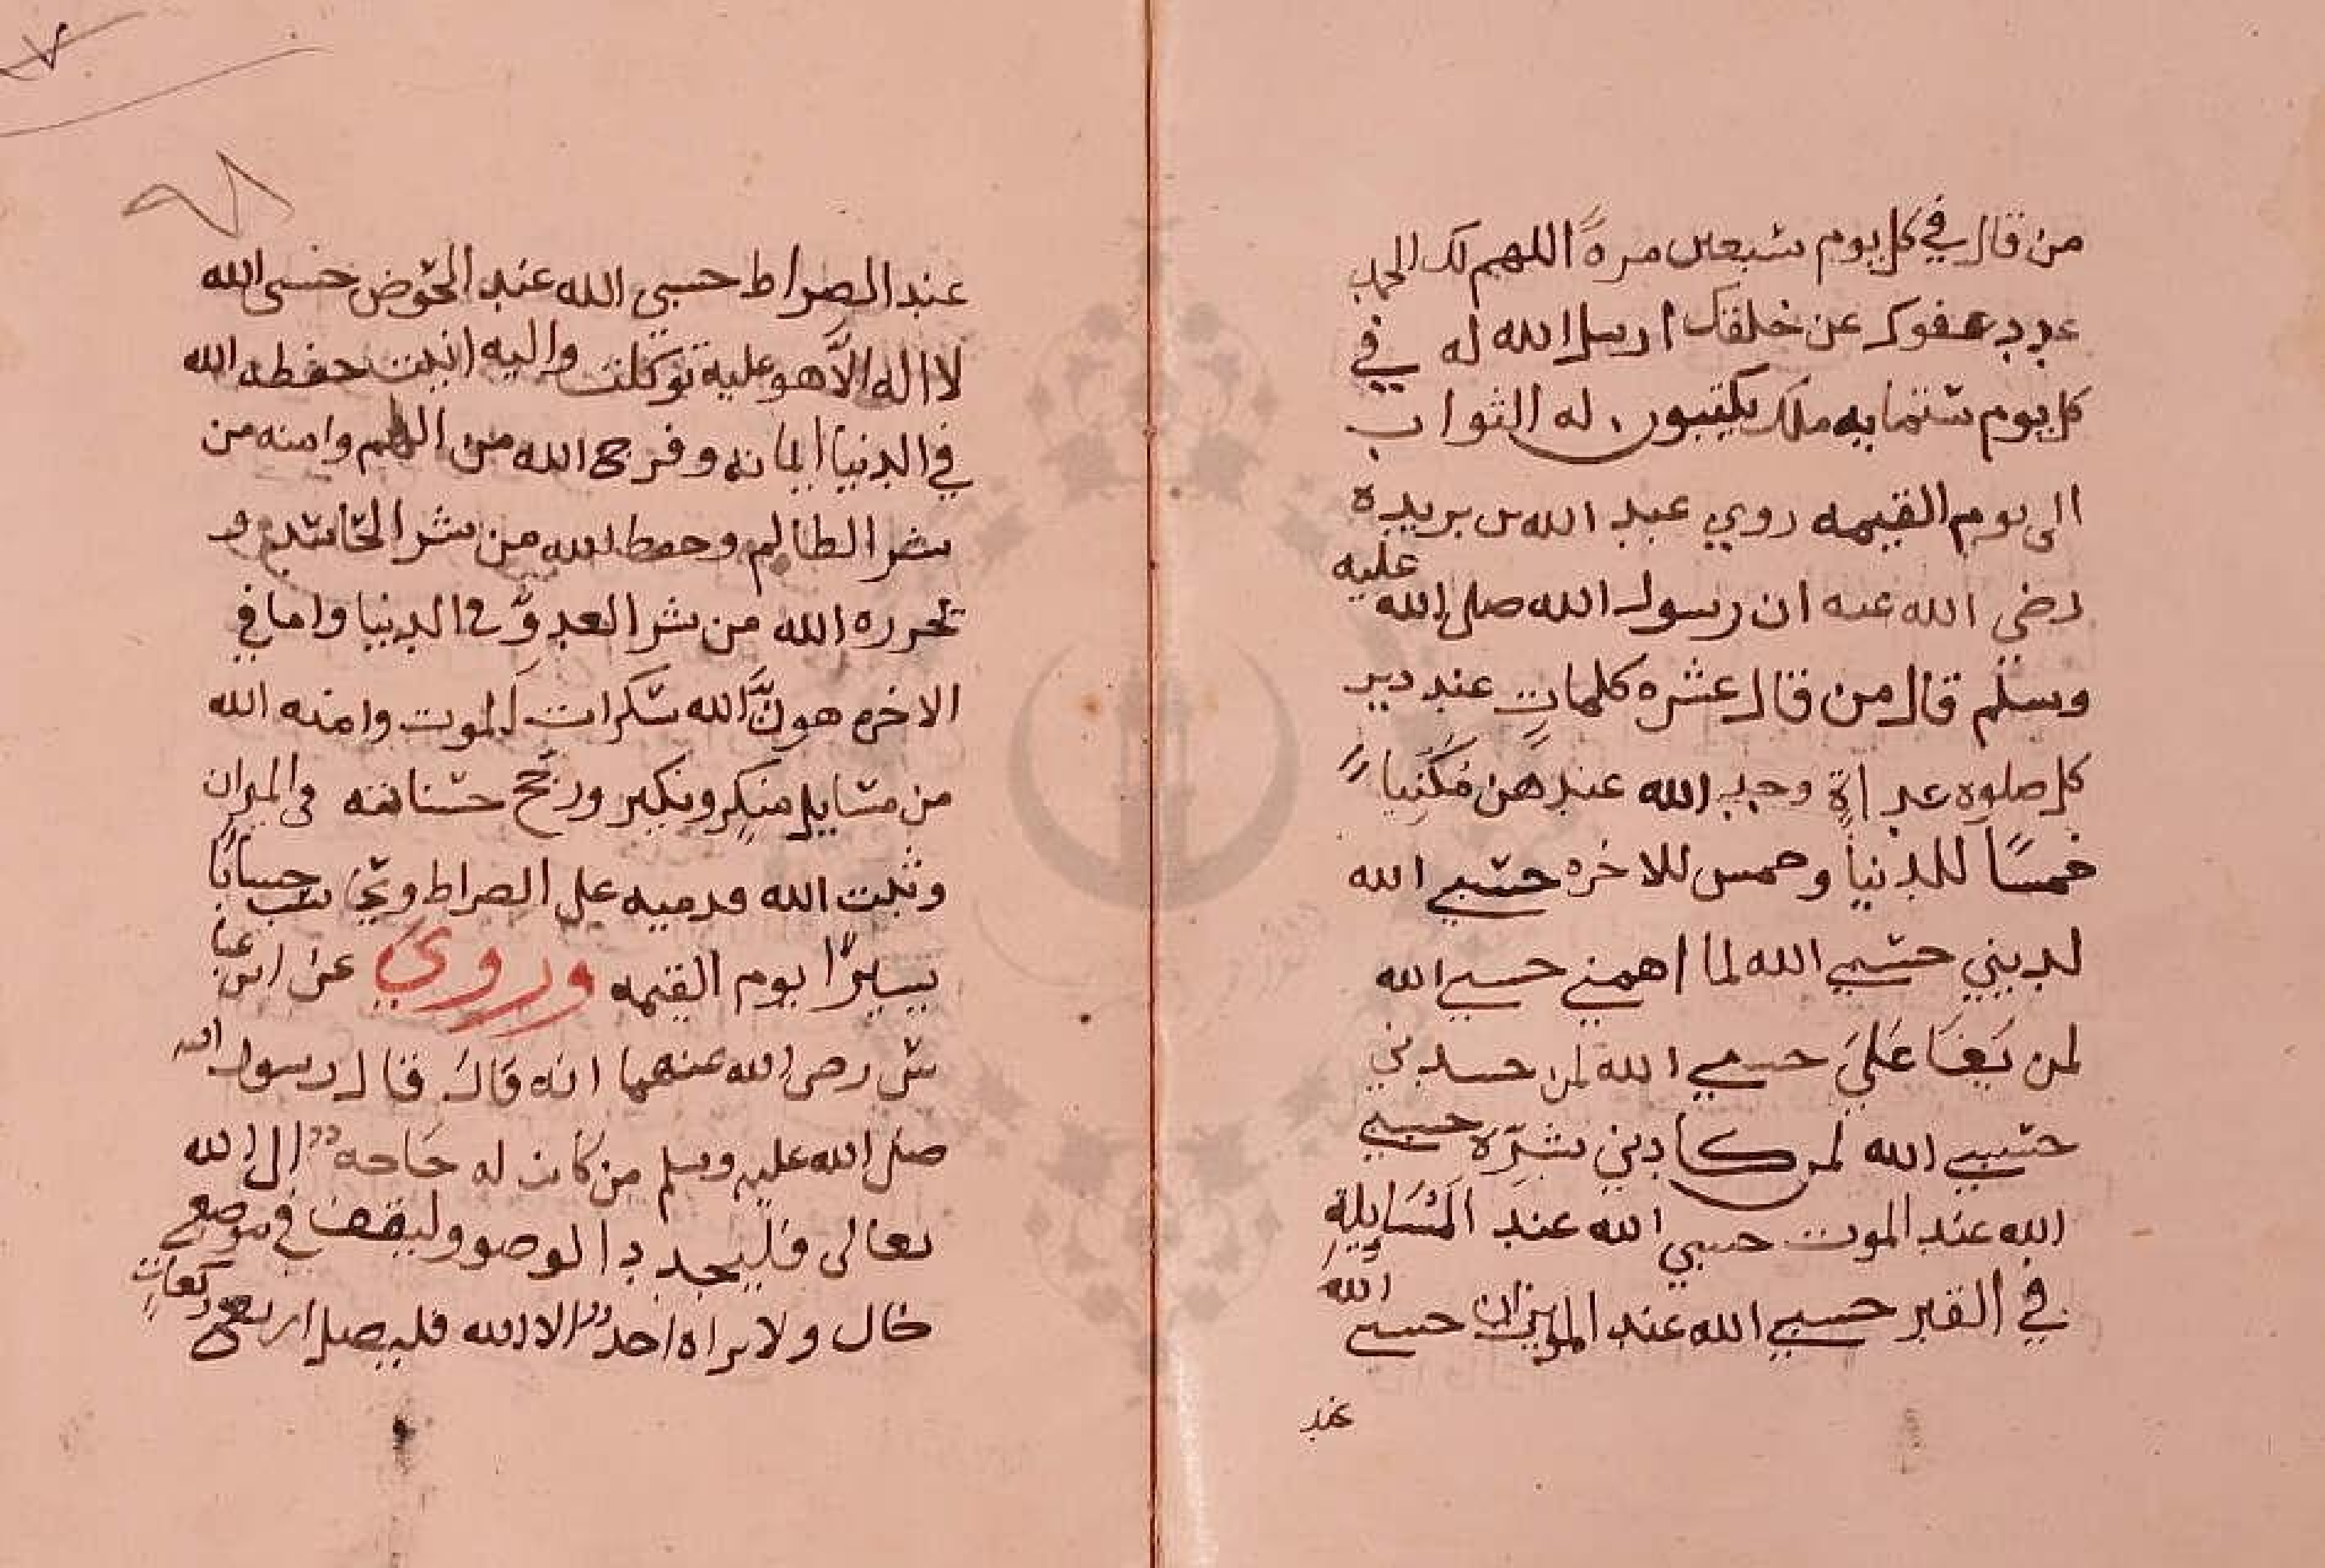 من قال في كل يوم سبعين مرة اللهم لك الحمد
عدد عفوك عن خلقك ارسل الله له في
كل يوم ستمايه ملك يكتبون له الثواب
الى يوم القيمه روي عبد الله بن بريدة
رضي الله عنه ان رسول الله صلى الله عليه
وسلم قال من قال عشره كلمات عند دبر
كل صلوه غداة وجد الله عندهن مكفيا
خمسًا للدنيا وخمس للاخره حسبي الله
لديني حسبي الله لما اهمني حسبي الله
لمن بَغَا عَليَ حسبي الله لمن حسدني
حسبي الله لمن كادني بشره حسبي
الله عند الموت حسبي الله عند المَسَايِلةِ
في القبر حسبي الله عند الميزان حسبي الله
عند
عند الصراط حسبي الله عند الحوض حسبي الله
لا اله الا هو عليه توكلت واليه انيب حفظه الله
في الدنيا ايمانه وفرج الله من الهم وامنه من
شر الظالم وحفظ الله من شر الحاسد و
تحرره الله من شر العدو في الدنيا واما في
الاخره هون الله سكرات الموت وامنه الله
من مسايل منكر ونكير ورجح حسناته في الميزان
وثبت الله قدميه على الصراط حسابًا
يسيرًا يوم القيمه وروي عن ابن عبا
س رضى الله عنهما انه قال قال رسول الله
صلى الله عليه وسلم من كانت له حاجه الى الله
تعالى فليجدد الوضو وليقف في موضع
خال ولا يراه احد الا الله فليصل اربع ركعات